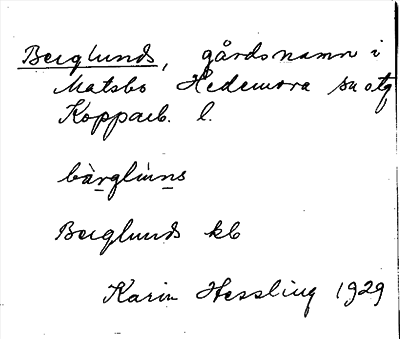 Berglunds, gårdsnamn i
Matsbo Hedemora sn otg
Kopparb. l.
bàrgluns
Berglunds kb
Karin Hessling 1929